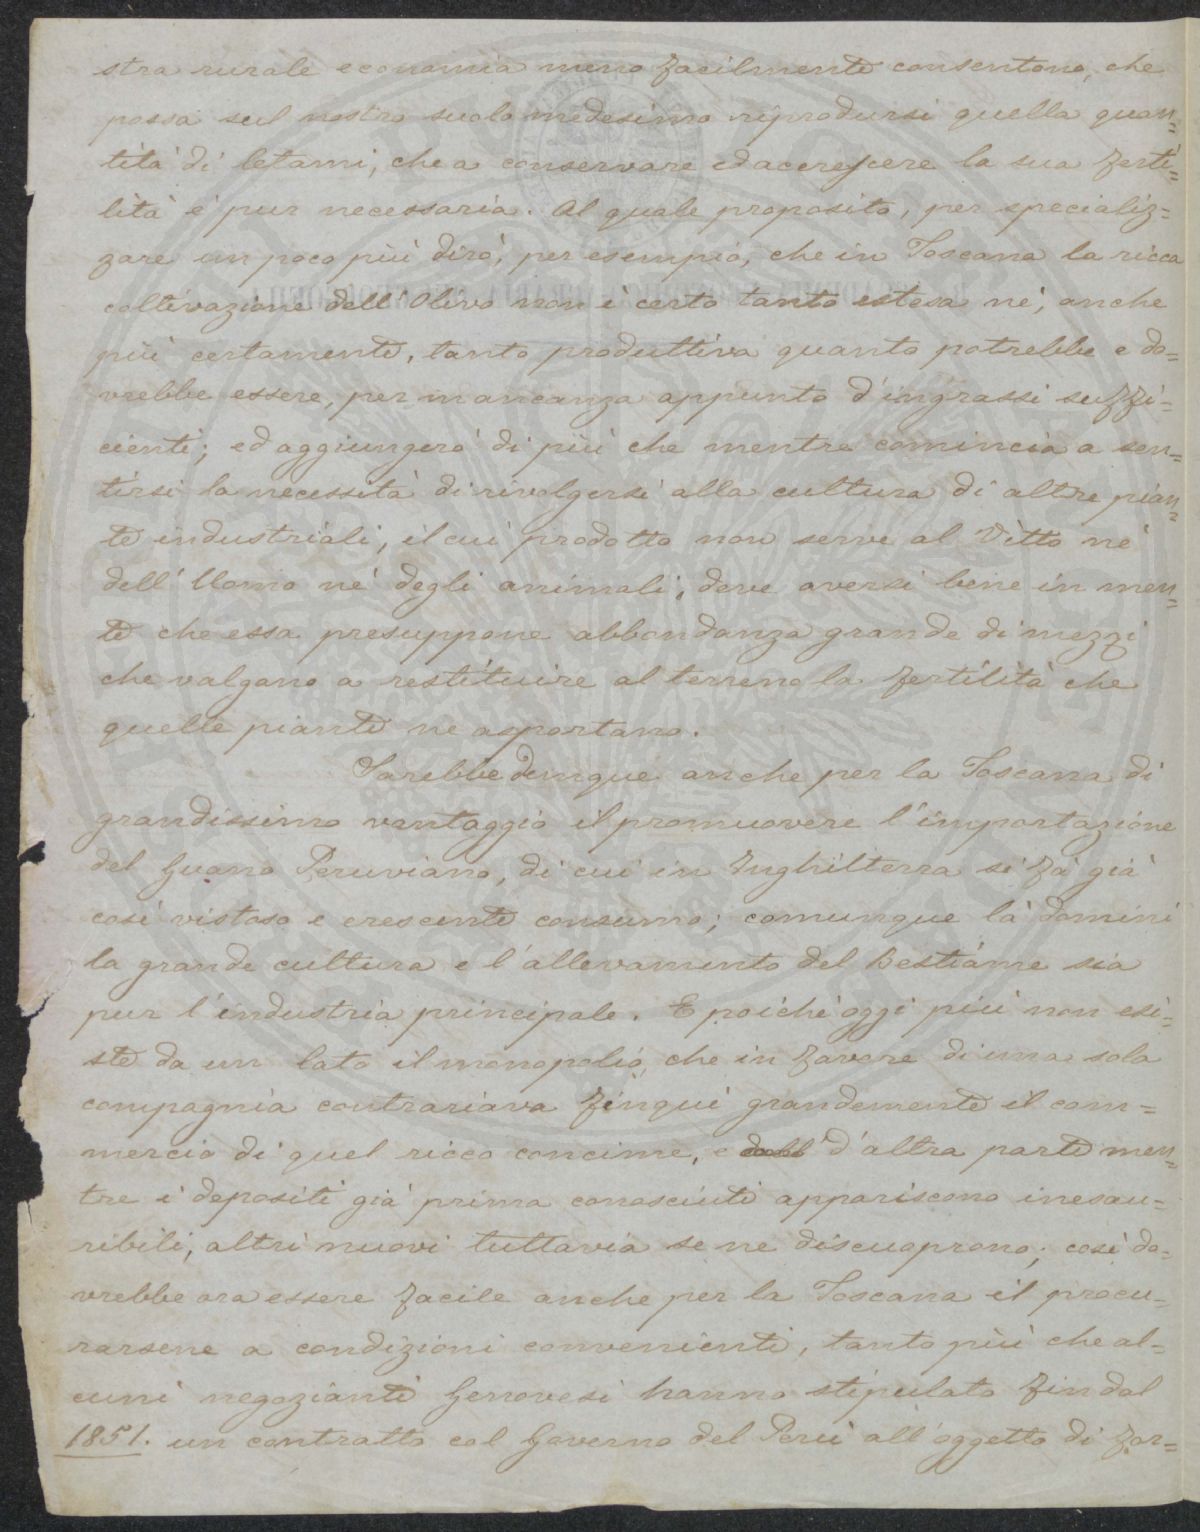 stra rurale economia meno facilmente consentono, che
possa sul nostro suolo medesimo riprodursi quella quan=
tità di letami, che a conservare ed accrescere la sua ferti=
lità è pur necessaria. Al quale proposito, per specializ=
zare un poco più dirò, per esempio, che in Toscana la ricca
coltivazione dell'Olivo non è certo tanto estesa nè, anche
più certamente, tanto produttiva quanto potrebbe e do=
vrebbe essere, per mancanza appunto d'ingrassi suffi=
cienti; ed aggiungerò di più che mentre comincia a sen=
tirsi la necessità di rivolgersi alla cultura di altre pian=
te industriali, il cui prodotto non serve al Vitto nè
dell'Uomo nè degli animali, deve aversi bene in men=
te che essa presuppone abbondanza grande di mezzi
che valgano a restituire al terreno la fertilità che
quelle piante ne asportano.
Sarebbe dunque anche per la Toscana di
grandissimo vantaggio il promuovere l'importazione
del Guano Peruviano, di cui in Inghilterra si fà già
così vistoso e crescente consumo; comunque là domini
la grande cultura e l'allevamento del Bestiame sia
pur l'industria principale. E poichè oggi più non esi=
ste da un lato il monopolio, che in favore di una sola
compagnia contrariava finqui grandemente il com=
mercio di quel ricco concime, e d'altra parte men=
tre i depositi già prima conosciuti appariscono inesau=
ribili, altri nuovi tuttavia se ne discuoprono; così do=
vrebbe ora essere facile anche per la Toscana il procu=
rarsene a condizioni convenienti, tanto più che al=
cuni negozianti Genovesi hanno stipulato fin dal
1851. un contratto col Governo del Perù all'oggetto di for=